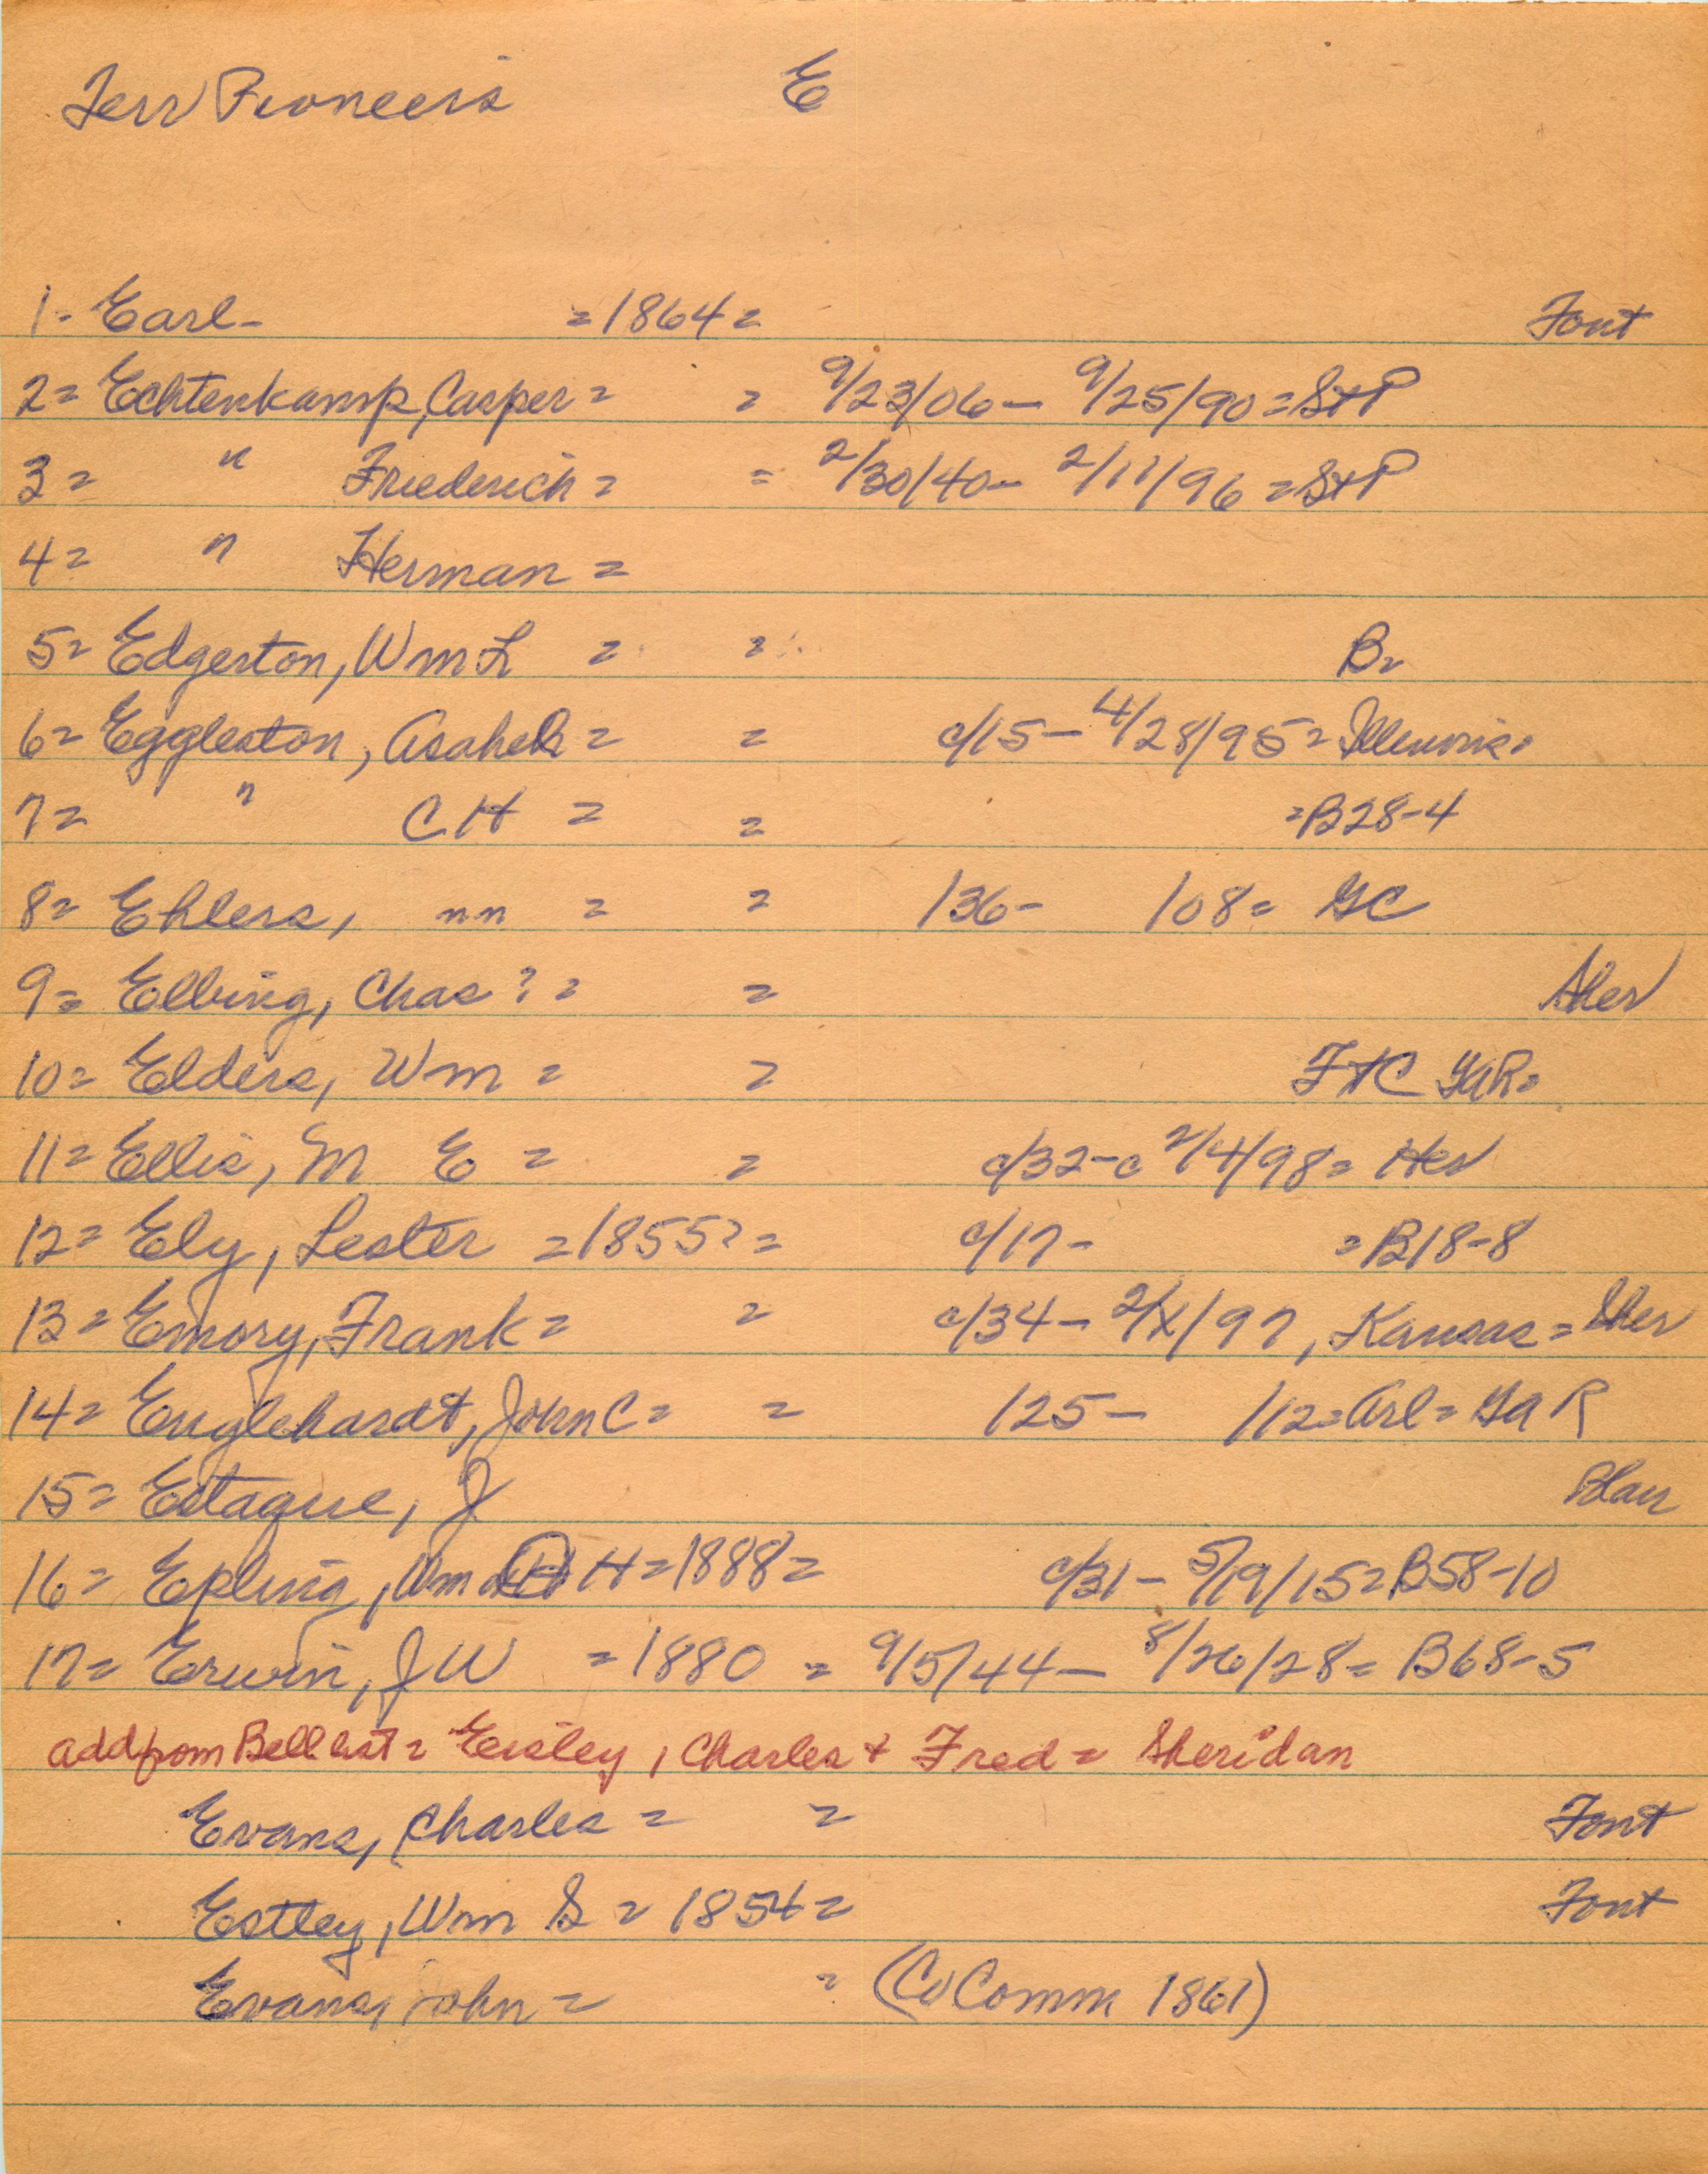 Terr Pioneers E
1- Earl- =1864= Font
2= Echtenkamp, Casper= = 9/23/06- 9/25/90=StP
3= " Friederich= = 2/30/40- 2/11/96=StP
4= " Herman=
5= Edgerton, Wm L = = B=
6= Eggleston, Asahel = = c/15- 4/28/95= Illinois=
7= " C H = = =B28-4
8= Ehlers, nn = = /36- /08= GC
9= Elbing, Chas?= = Sher
10= Elders, Wm= = FtC GAR=
11= Ellis, M E = = c/32-c 2/4/98= Her
12= Ely, Lester =1855?= c/17- =B18-8
13= Emory, Frank= = c/34- 2/x/97, Kansas= Sher
14= Englehardt, John C= = /25- /12=Arl= GAR
15= Estague, J Blair
16= Epling, Wm H=1888= c/31- 5/19/15=B58-10
17= Erwin, J W =1880 = 9/5/44- 8/26/28= B68-5
add from Bell list= Eisley, Charles + Fred= Sheridan
Evans, Charles= = Font
Estley, Wm S = 1854= Font
Evans, John= = (Co Comm 1861)